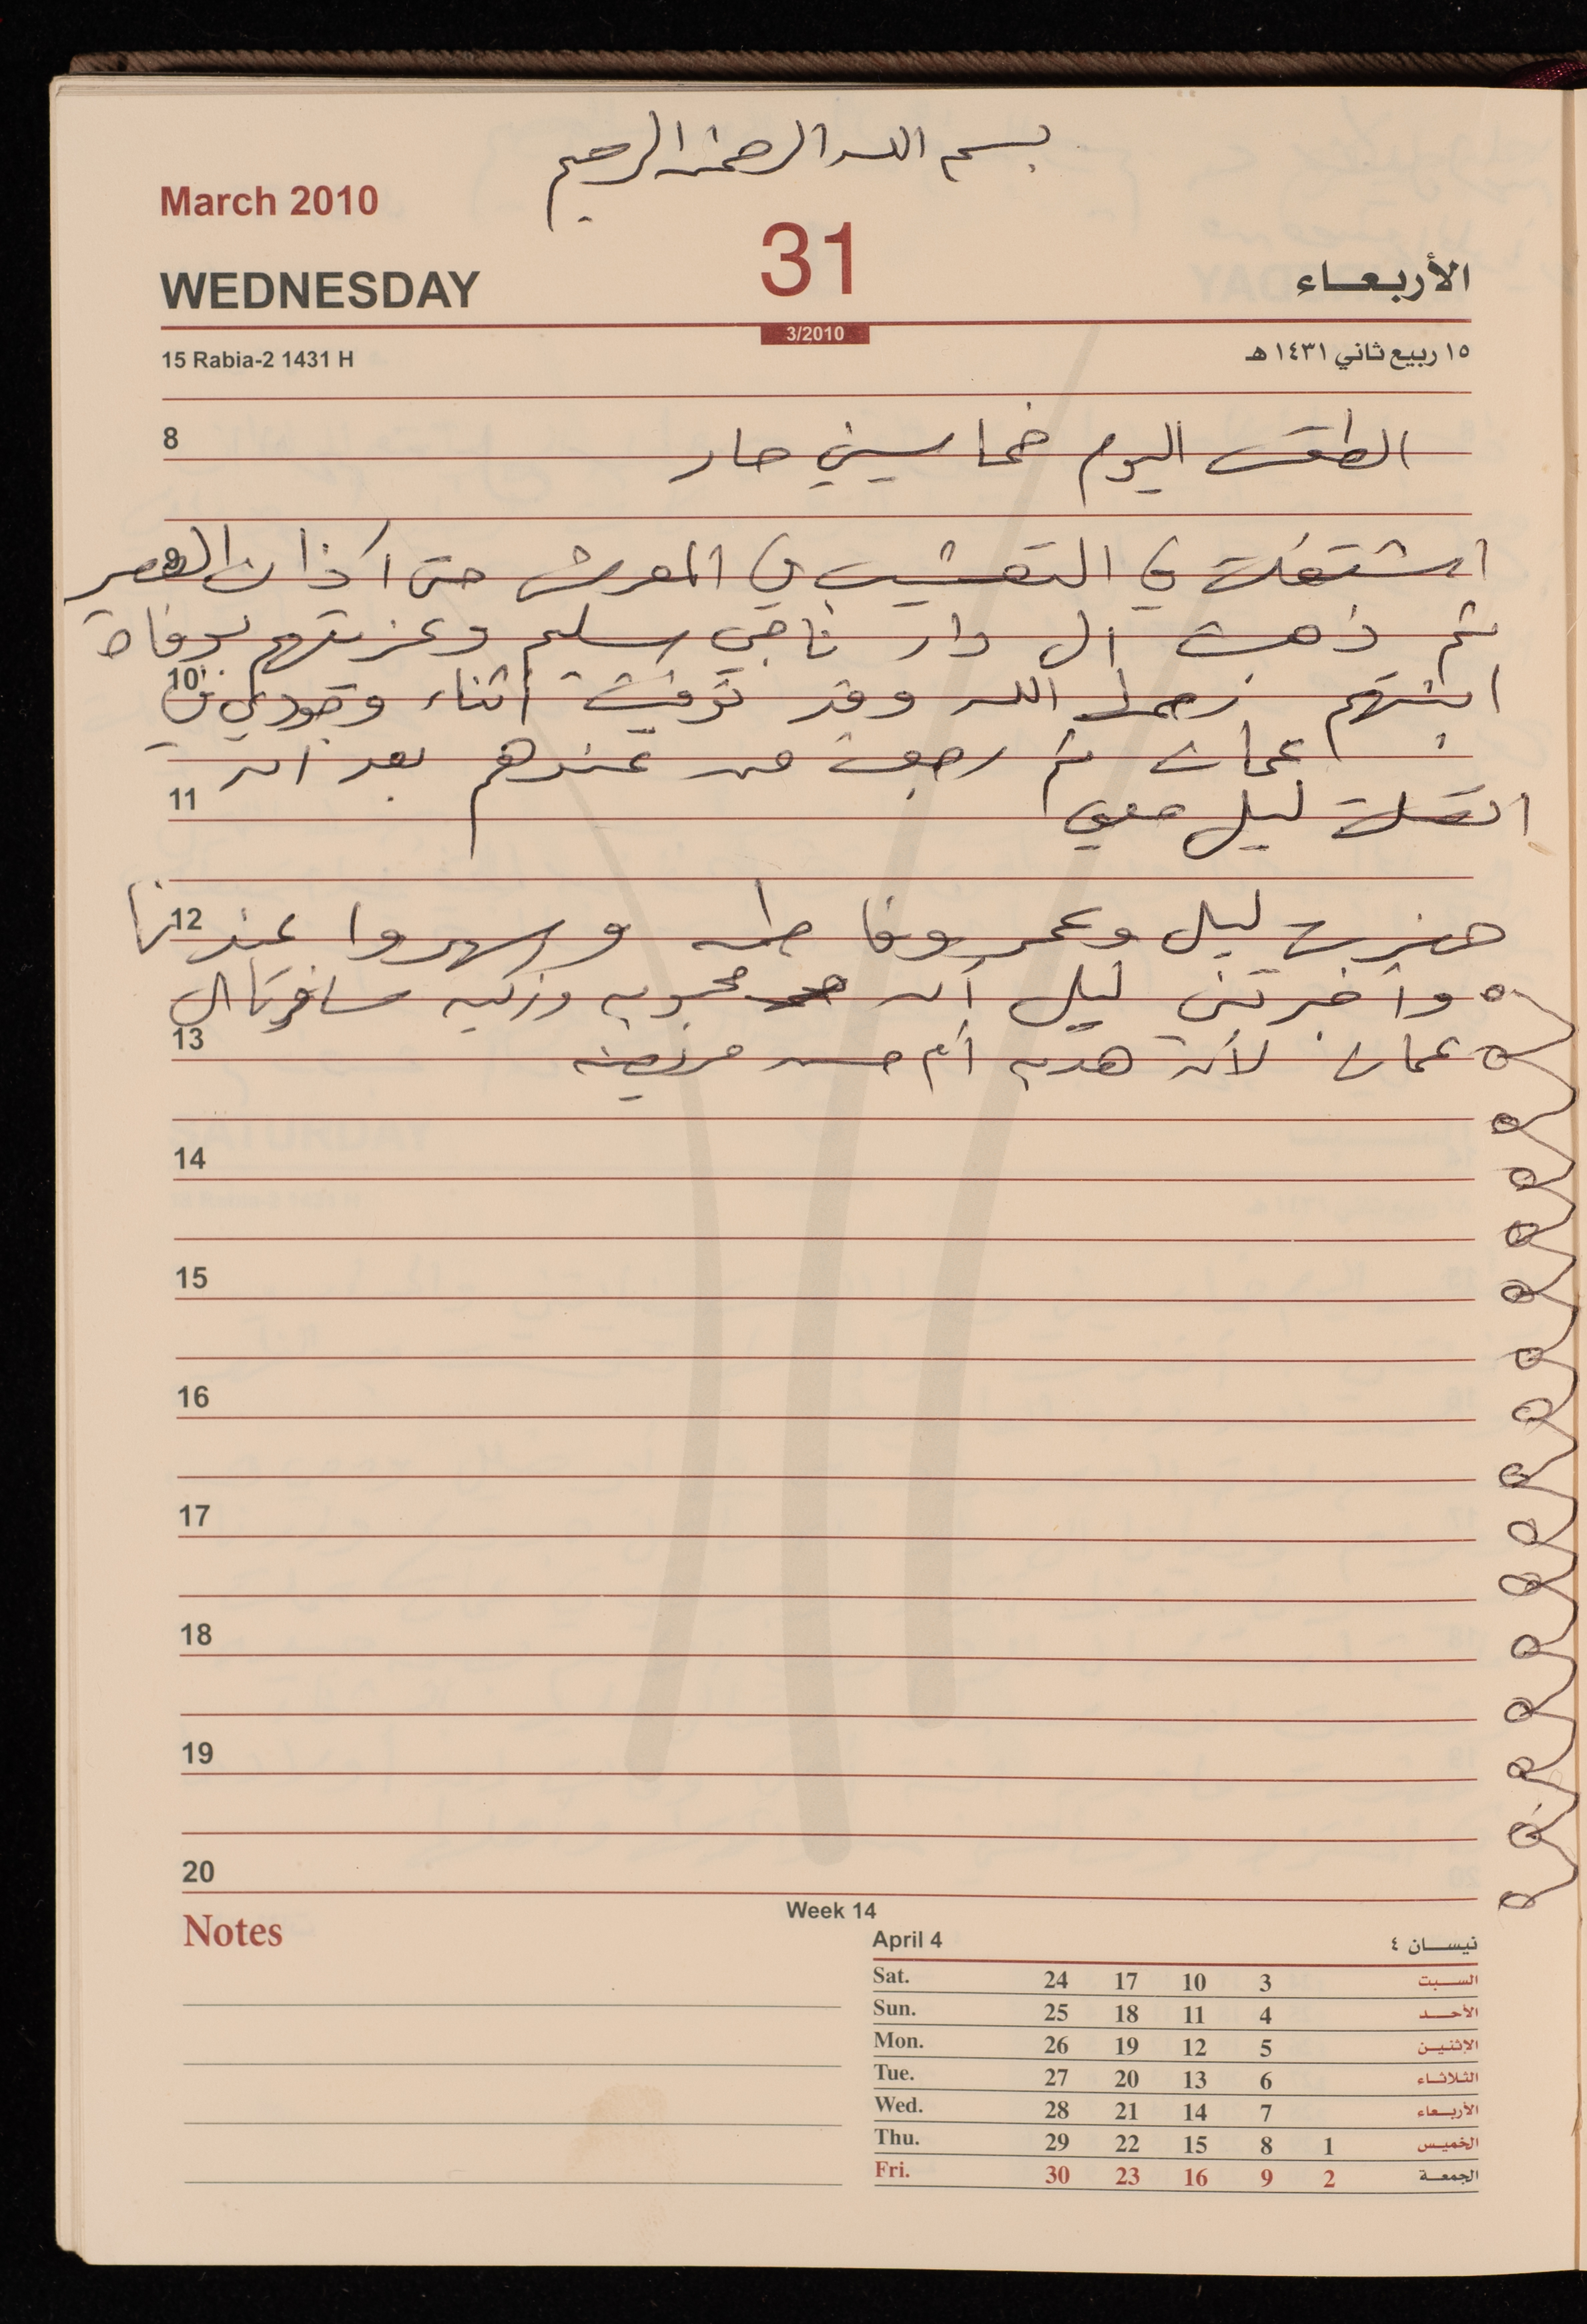 بسم الله الرحمن الرحيم
March 2010
31
WEDNESDAY
الأربعاء
3/2010
15 Rabia-2 1431 H
١٥ ربيع ثاني ١٤٣١ هـ
8
الطقس اليوم خماسيني حار
9
اشتغلت في التعشيب في المعرش حتى اذان العصر
ثم ذهبت الى دار ناجي سليم وعزيتهم بوفاة
10
ابنتهم رحمها الله وقد توفيت أثناء وجودي في
عمان ثم رجعت من عندهم بعد ان
11
اتصلت ليلى معي
12
حضرت ليلى وعمر وفاطمه وسهروا عندنا
وأخبرتني ليلى أن محبوبه وزكيه سافرتا الى
13
عمان لأن هديه أم حسن مريضه
14
15
16
17
18
19
20
Notes
Week 14
April 4
نيسان ٤
Sat. 24 17 10 3 السبت
Sun. 25 18 11 4 الأحد
Mon. 26 19 12 5 الإثنين
Tue. 27 20 13 6 الثلاثاء
Wed. 28 21 14 7 الأربعاء
Thu. 29 22 15 8 1 الخميس
Fri. 30 23 16 9 2 الجمعة